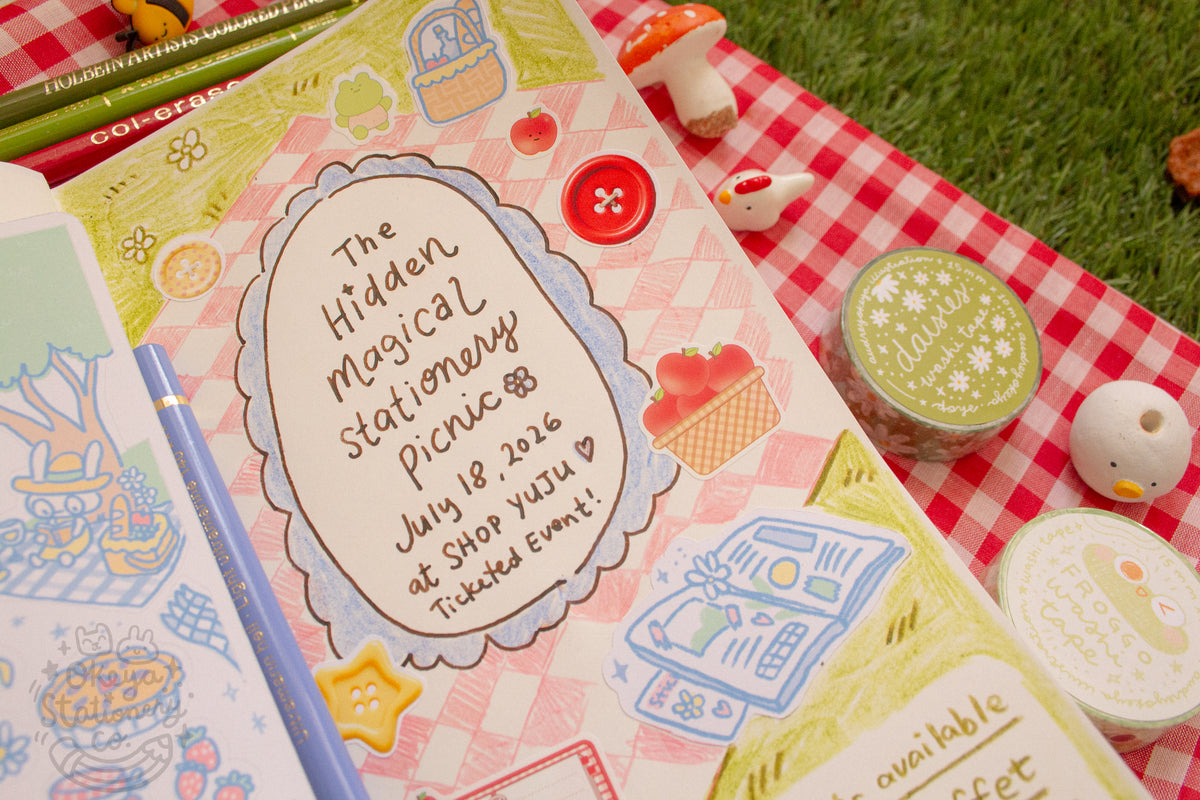 HOLBEIN ARTISTS COLORED PENC
col-erase
The
Hidden
Magical
Stationery
Picnic
July 18, 2026
at SHOP YUJU
Ticketed Event!
daisies
washi tape
15mm
washi tape
FROGGO
washi
tape
available
Okeya
Stationery
Co.